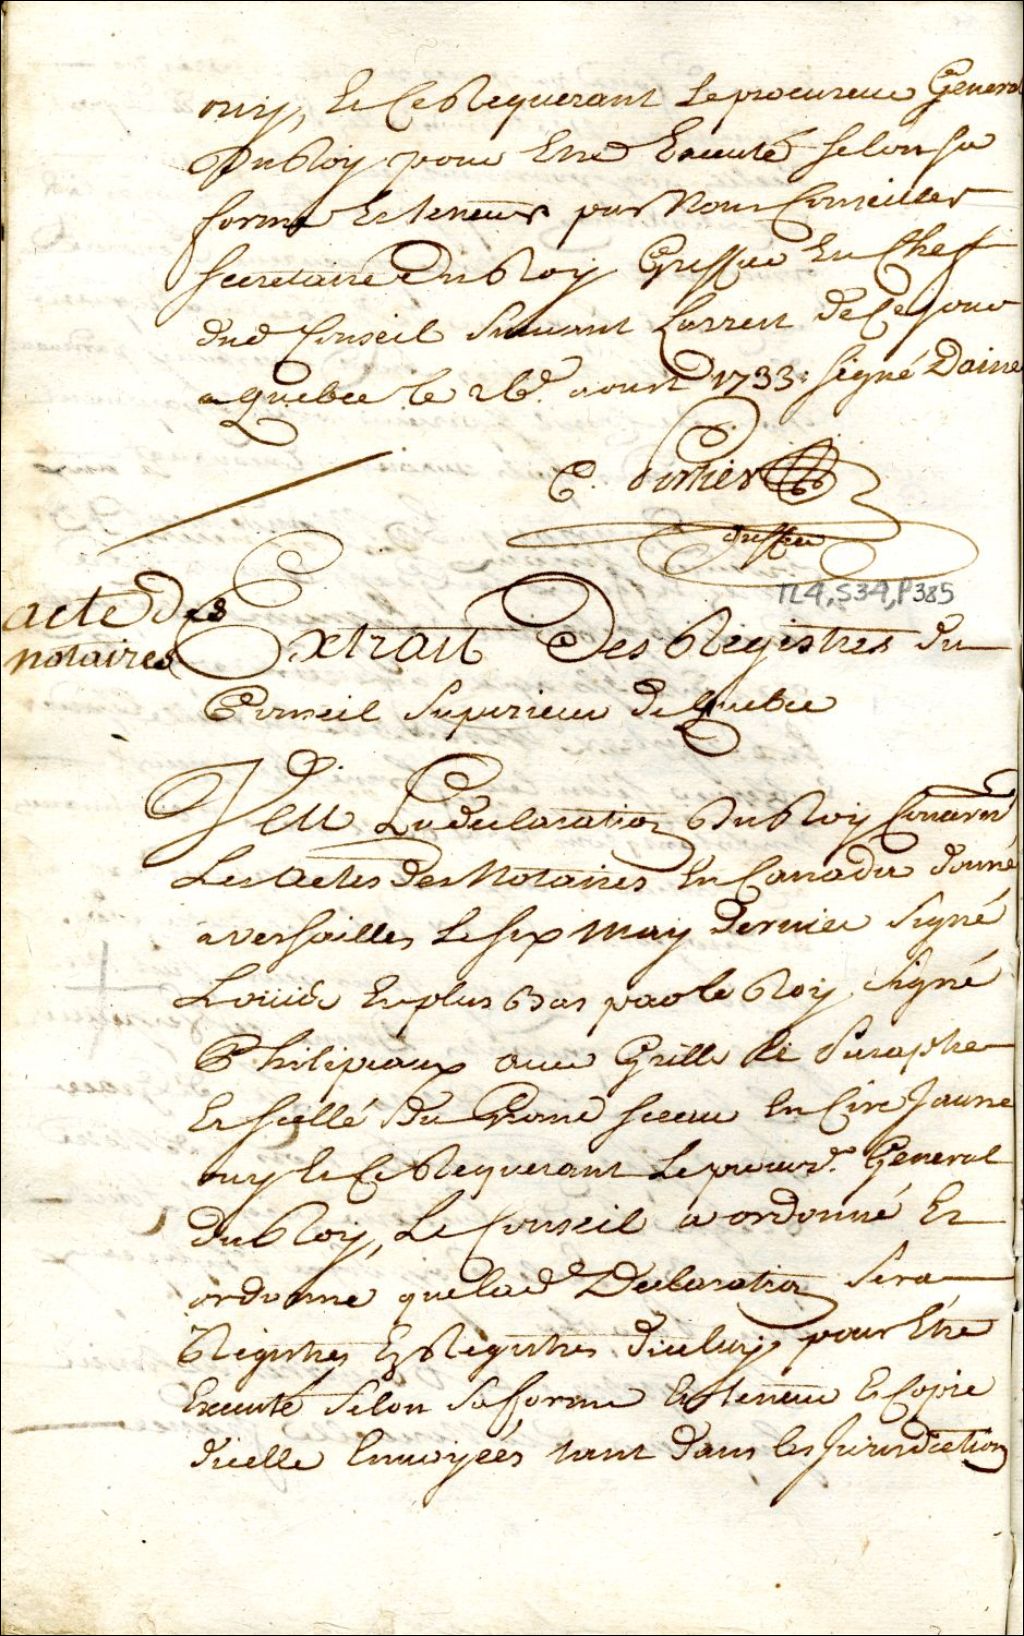 ouy, Et Ce Requerant Le procureur General
Du Roy pour Etre Executé Selon Sa
forme Et teneur par Nous Conseiller
Secretaire Du Roy Greffier En Chef
dud Conseil Suivant Larrest de Ce jour
a Quebec le aoust 1733: Signé Daine
C. Porlier
Greffier
TL4, S34, P385
acte des
notaires
Extrait Des Registres du
Conseil Superieur de Quebec
Veu La declaration du Roy Concernt
Les actes des Notaires En Canada donné
a Versailles Le Six May dernier Signé
Louis Et plus Bas par le Roy, Signé
Philipeaux avec Grille Et Paraphe
Et Scellé du Grand Sceau En Cire Jaune
ouy Et Ce Requerant Le procurr. General
du Roy, Le Conseil a ordonné Et
ordonne que lade Declaration Sera
Registrée Ez Registres d'iceluy pour Etre
Executé Selon Sa forme Et teneur Et Copie
d'icelle Envoyées tant dans les Jurisdiction